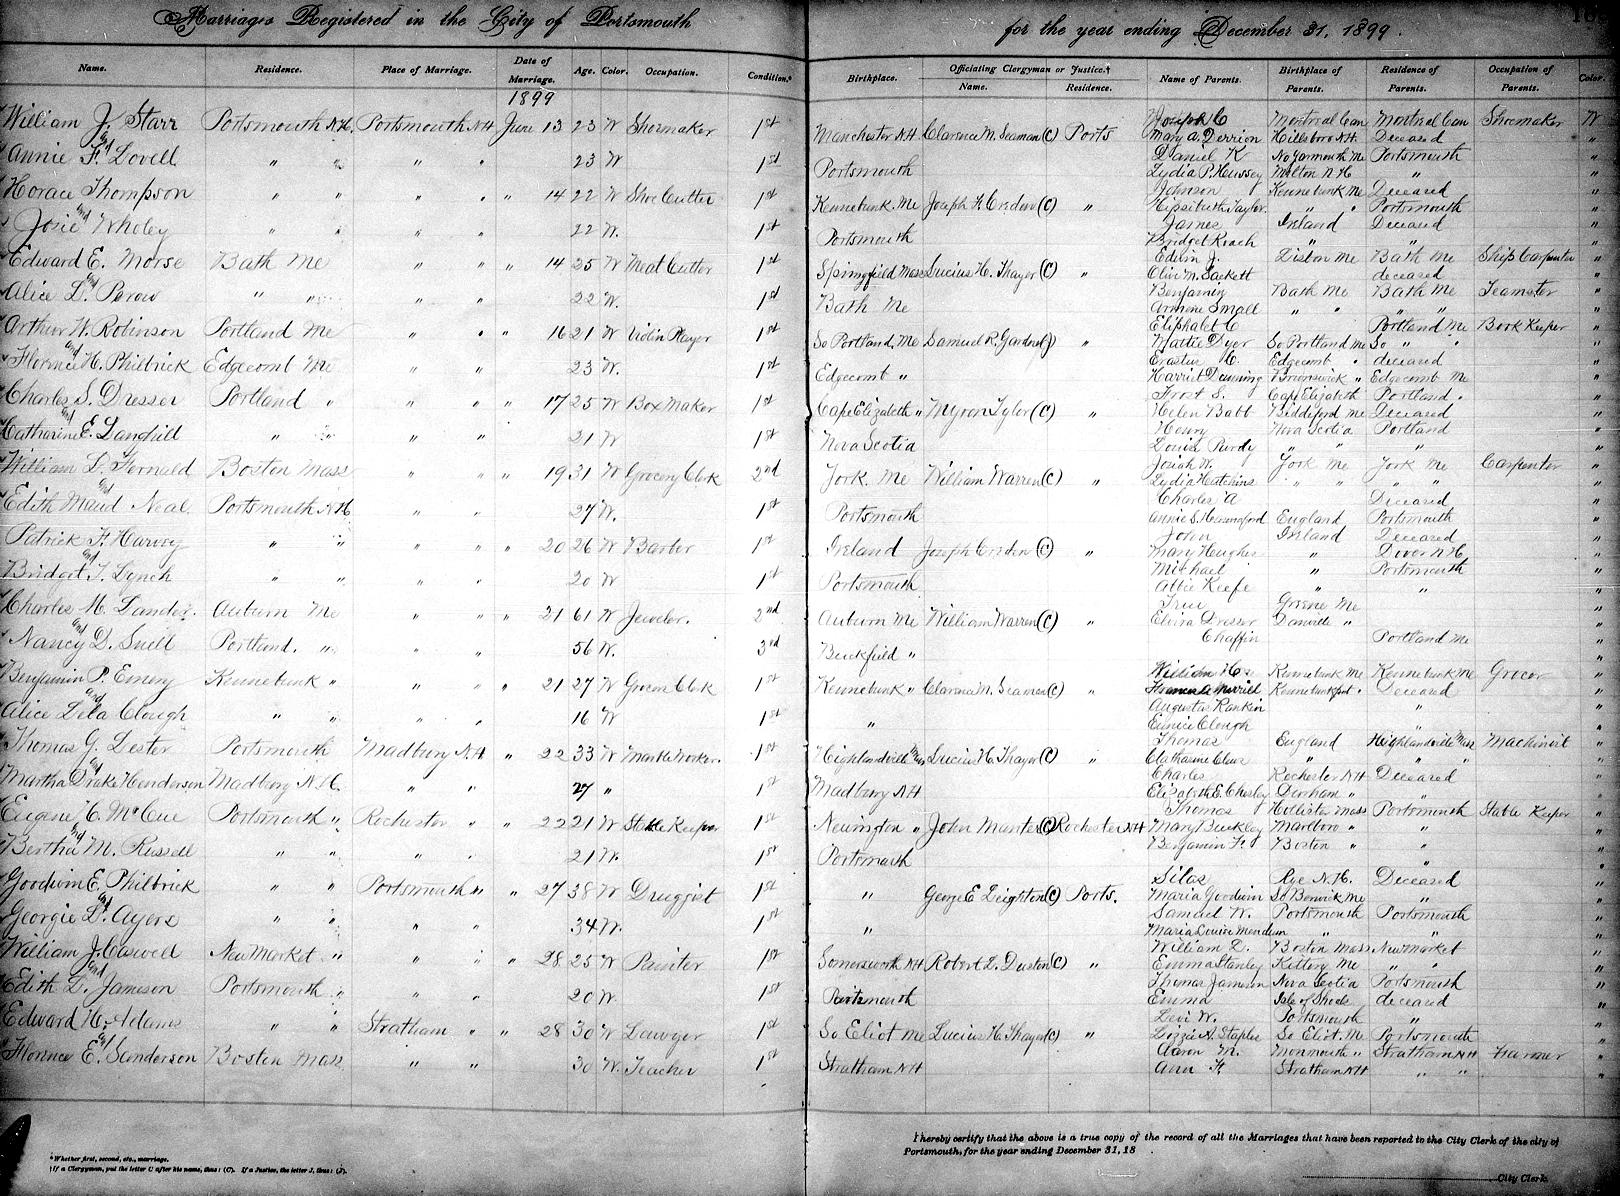 Marriages Registered in the City of Portsmouth for the year ending December 31, 1899.
Name. Residence. Place of Marriage. Date of Marriage. Age. Color. Occupation. Condition.* Birthplace. Officiating Clergyman or Justice.† Name. Residence. Name of Parents. Birthplace of Parents. Residence of Parents. Occupation of Parents. Color.
1899
William J. Starr Portsmouth N.H. Portsmouth N.H. June 13 23 W Shoemaker 1st Manchester N.H. Clarence M. Seaman (C) Ports Joseph C Montreal Can Montreal Can Shoemaker W
and Mary A. Derrion Hillsboro N.H. Deceased "
Annie F. Lovell " " " " 23 W 1st Portsmouth Daniel K No Yarmouth Me Portsmouth "
Lydia P. Hussey Milton N H " "
Horace Thompson " " " " " 14 22 W Shoe Cutter 1st Kennebunk. Me Joseph H. (C) " Johnson Kennebunk Me Deceased "
and Taylor. " " Portsmouth "
Josie Wholey " " " " 22 W. 1st Portsmouth James Ireland Deceased "
Bridget Roach " " "
Edward E. Morse Bath Me " " " 14 25 W Meat Cutter 1st Springfield Mass Lucius H. Thayer (C) " Edwin J. Me Bath Me Ship Carpenter "
and Olive M. Sackett deceased "
Alice L. " " " " 22 W. 1st Bath Me Benjamin Bath Me Bath Me Teamster "
Small " " " " "
Arthur W. Robinson Portland Me " " " 16 21 W Violin Player 1st So Portland, Me Samuel R. Gardner (J) " Eliphalet C Portland Me Book Keeper "
and Mattie Dyer So Portland Me So " " "
Florence H. Philbrick Edgecomb Me " " 23 W. 1st Edgecomb " Erastus C. Edgecomb " deceased "
Harriet Dunning Brunswick " Edgecomb Me "
Charles S. Dresser Portland " " " " 17 25 W Box Maker 1st Cape Elizabeth " Myron Tyler (C) " Frost S. Cape Elizabeth Portland " "
and Helen Babb Biddeford Me Deceased "
Catharine E. Langfill " " " " 21 W 1st Nova Scotia Henry Nova Scotia Portland "
Louisa Purdy " " " "
William L. Fernald Boston Mass " " " 19 31 W Grocery Clerk 2nd York. Me William Warren (C) " Josiah W. York Me York Me Carpenter "
and Lydia Hutchins " " " " "
Edith Maud Neal. Portsmouth N.H. " " 27 W. 1st Portsmouth Charles A Deceased "
Annie S. England Portsmouth "
Patrick F. Harvey " " " " " 20 26 W Barber 1st Ireland Joseph (C) " John Ireland Deceased "
and Mary Hughes " Dover N.H. "
Bridget T. Lynch " " " " 20 W 1st Portsmouth Michael " Portsmouth "
Abbie Keefe " " "
Charles M. Auburn Me " " " 21 61 W Jeweler. 2nd Auburn Me William Warren (C) " True Greene Me "
and Elvira Dresser Danville " "
Nancy D. Snell Portland. " " " 56 W. 3rd Buckfield " Chaffin Portland Me "
Benjamin P. Emery Kennebunk " " " " 21 27 W Grocery Clerk 1st Kennebunk " Clarence M. Seaman (C) " William H. Kennebunk Me Kennebunk Me Grocer "
and Merrill Kennebunkport " Deceased "
Alice Lela Clough " " " " 16 W 1st " Augustus Rankin " "
Eunice Clough " "
Thomas G. Lester Portsmouth Madbury N.H. " 22 33 W 1st Highlandville Mass Lucius H. Thayer (C) " Thomas England Highlandville Mass Machinist "
and Catharine " " " "
Martha Drake Henderson Madbury N.H. " " 27 " 1st Madbury N.H. Charles Rochester N.H. Deceased "
Elizabeth E. Chesley Durham " " "
Eugene C. McCue Portsmouth " Rochester " " 22 21 W Stable Keeper 1st Newington " John Manter (C) Rochester N.H. Thomas Mass Portsmouth Stable Keeper "
and Mary Buckley Marlboro " " "
Bertha M. Russell " " " " 21 W. 1st Portsmouth Benjamin F. Boston " " "
Goodwin E. Philbrick " " Portsmouth " " 27 38 W Druggist 1st " George E. Leighton (C) Ports. Silas Rye N.H. Deceased "
and Maria Goodwin So Berwick Me " "
Georgie D. Ayers " " " " 34 W. 1st " Samuel W. Portsmouth Portsmouth "
Maria Louise Mendum " " "
William J. Caswell New Market " " " " 28 25 W Painter 1st Somersworth N.H. Robert L. Duston (C) " William L. Boston Mass Newmarket "
and Emma Stanley Kittery Me " " "
Edith L. Jameson Portsmouth " " " 20 W. 1st Portsmouth Thomas Jameson Nova Scotia Portsmouth "
Emma Isle of Shoals deceased "
Edward H. Adams " " Stratham " " 28 30 W Lawyer 1st So Eliot Me Lucius H. Thayer (C) " Levi W. Portsmouth " "
and Lizzie A. Staples So Eliot. Me Portsmouth "
Florence E. Sanderson Boston Mass " " 30 W. Teacher 1st Stratham N.H. Aaron M. Monmouth " Stratham N.H. Farmer "
Ann F. Stratham N.H. " " "
* Whether first, second, etc., marriage.
† If a Clergyman, put the letter C after his name, thus: (C). If a Justice, the letter J, thus: (J).
I hereby certify that the above is a true copy of the record of all the Marriages that have been reported to the City Clerk of the city of
Portsmouth, for the year ending December 31, 18
City Clerk.